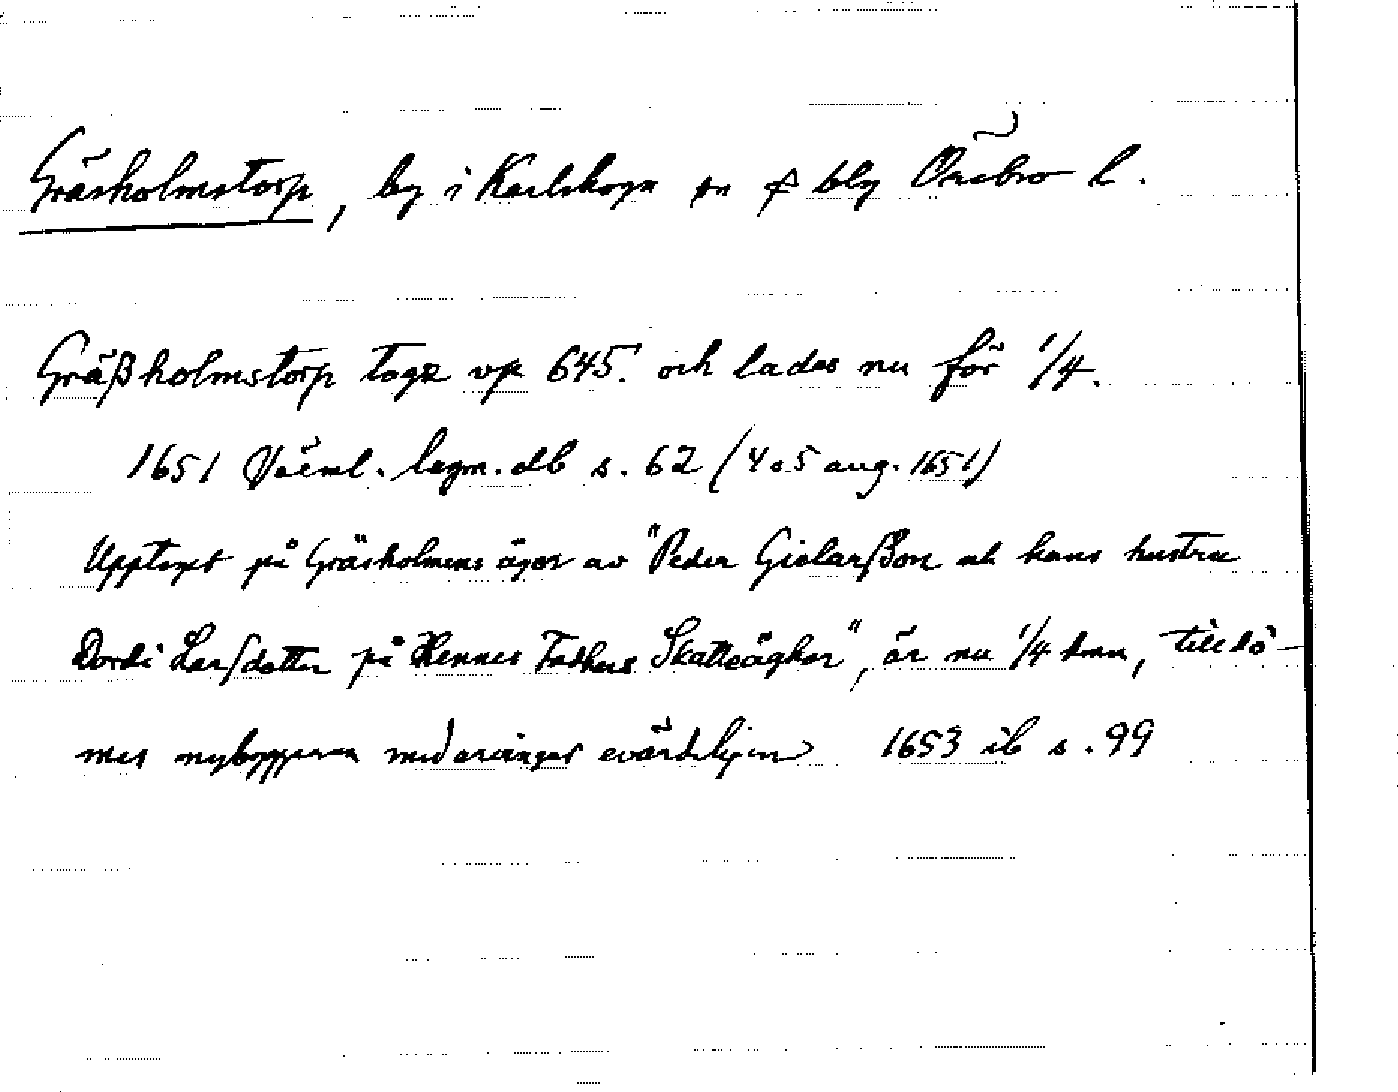 Gräsholmstorp, by i Karlskoga sn o bsg Örebro l.
Gräßholmstorp togz vp 645. och lades nu för 1/4.
1651 Värml. lagm. db s. 62 (4 o 5 aug. 1651)
Upptaget på Gräsholmens ägor av "Peder Giolarßon och hans hustru
Dordi Larsdotter på Hennes Fadhers Skatteäghor", är nu 1/4 hmn, tilldö-
mes nybyggarna med arvingar evärdeligen 1653 ib s. 99